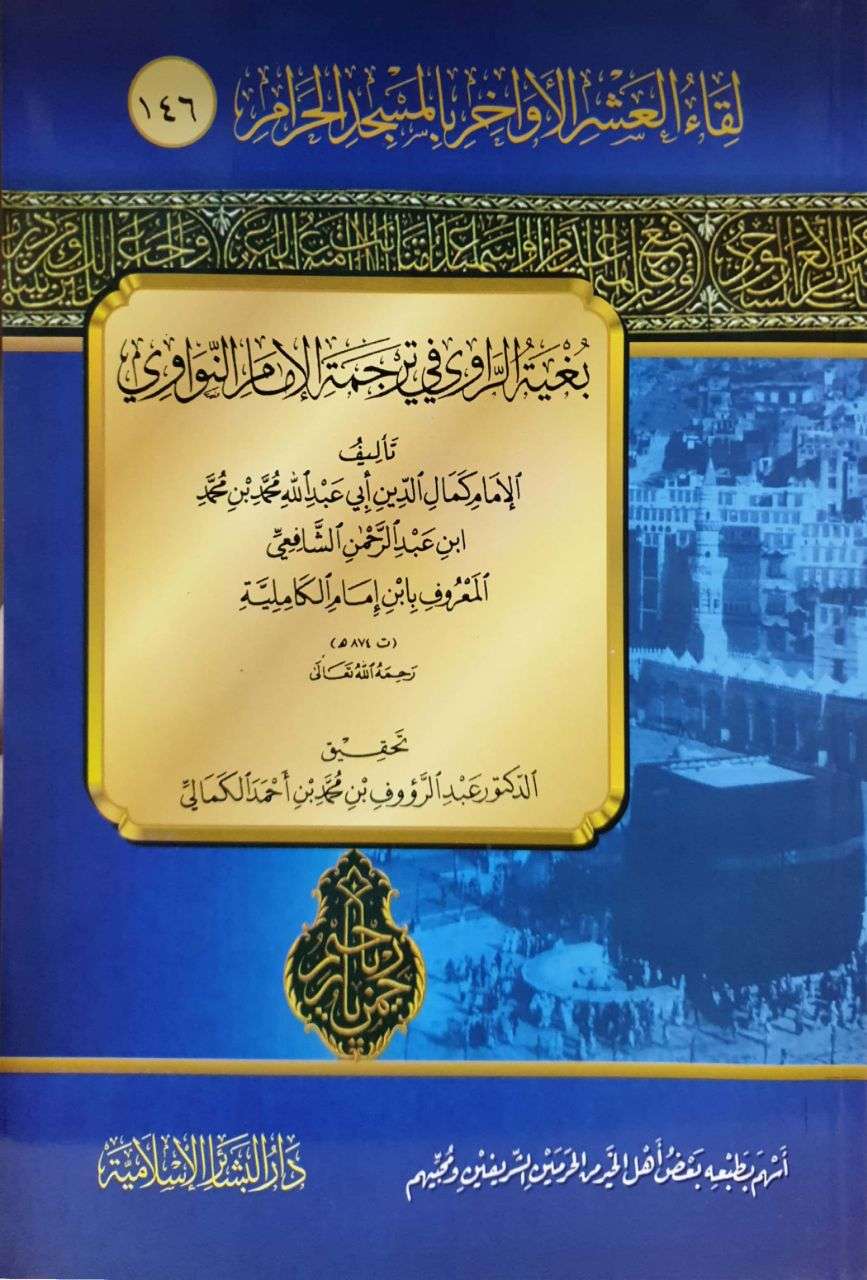 لِقَاءُ العَشْرِ الأَوَاخِرِ بِالمَسْجِدِ الحَرَامِ
١٤٦
بُغْيَةُ الرَّاوِي فِي تَرْجَمَةِ الإِمَامِ النَّوَاوِي
تَأْلِيفُ
الإِمَامِ كَمَالِ الدِّينِ أَبِي عَبْدِ اللهِ مُحَمَّدِ بْنِ مُحَمَّدِ
ابنِ عَبْدِ الرَّحْمٰنِ الشَّافِعِيِّ
المَعْرُوفِ بِابْنِ إِمَامِ الكَامِلِيَّةِ
(ت ٨٧٤ هـ)
رَحِمَهُ اللهُ تَعَالَى
تَحْقِيق
الدّكتور عَبْدِ الرَّؤُوفِ بْنِ مُحَمَّدِ بْنِ أَحْمَدَ الكَمَالِيِّ
يا رحمن يا رحيم
أَسْهَمَ بِطَبْعِهِ بَعْضُ أَهْلِ الخَيْرِ مِنَ الحَرَمَيْنِ الشَّرِيفَيْنِ وَمُحِبِّيهِم
دَارُ البَشَائِرِ الإِسْلَامِيَّة